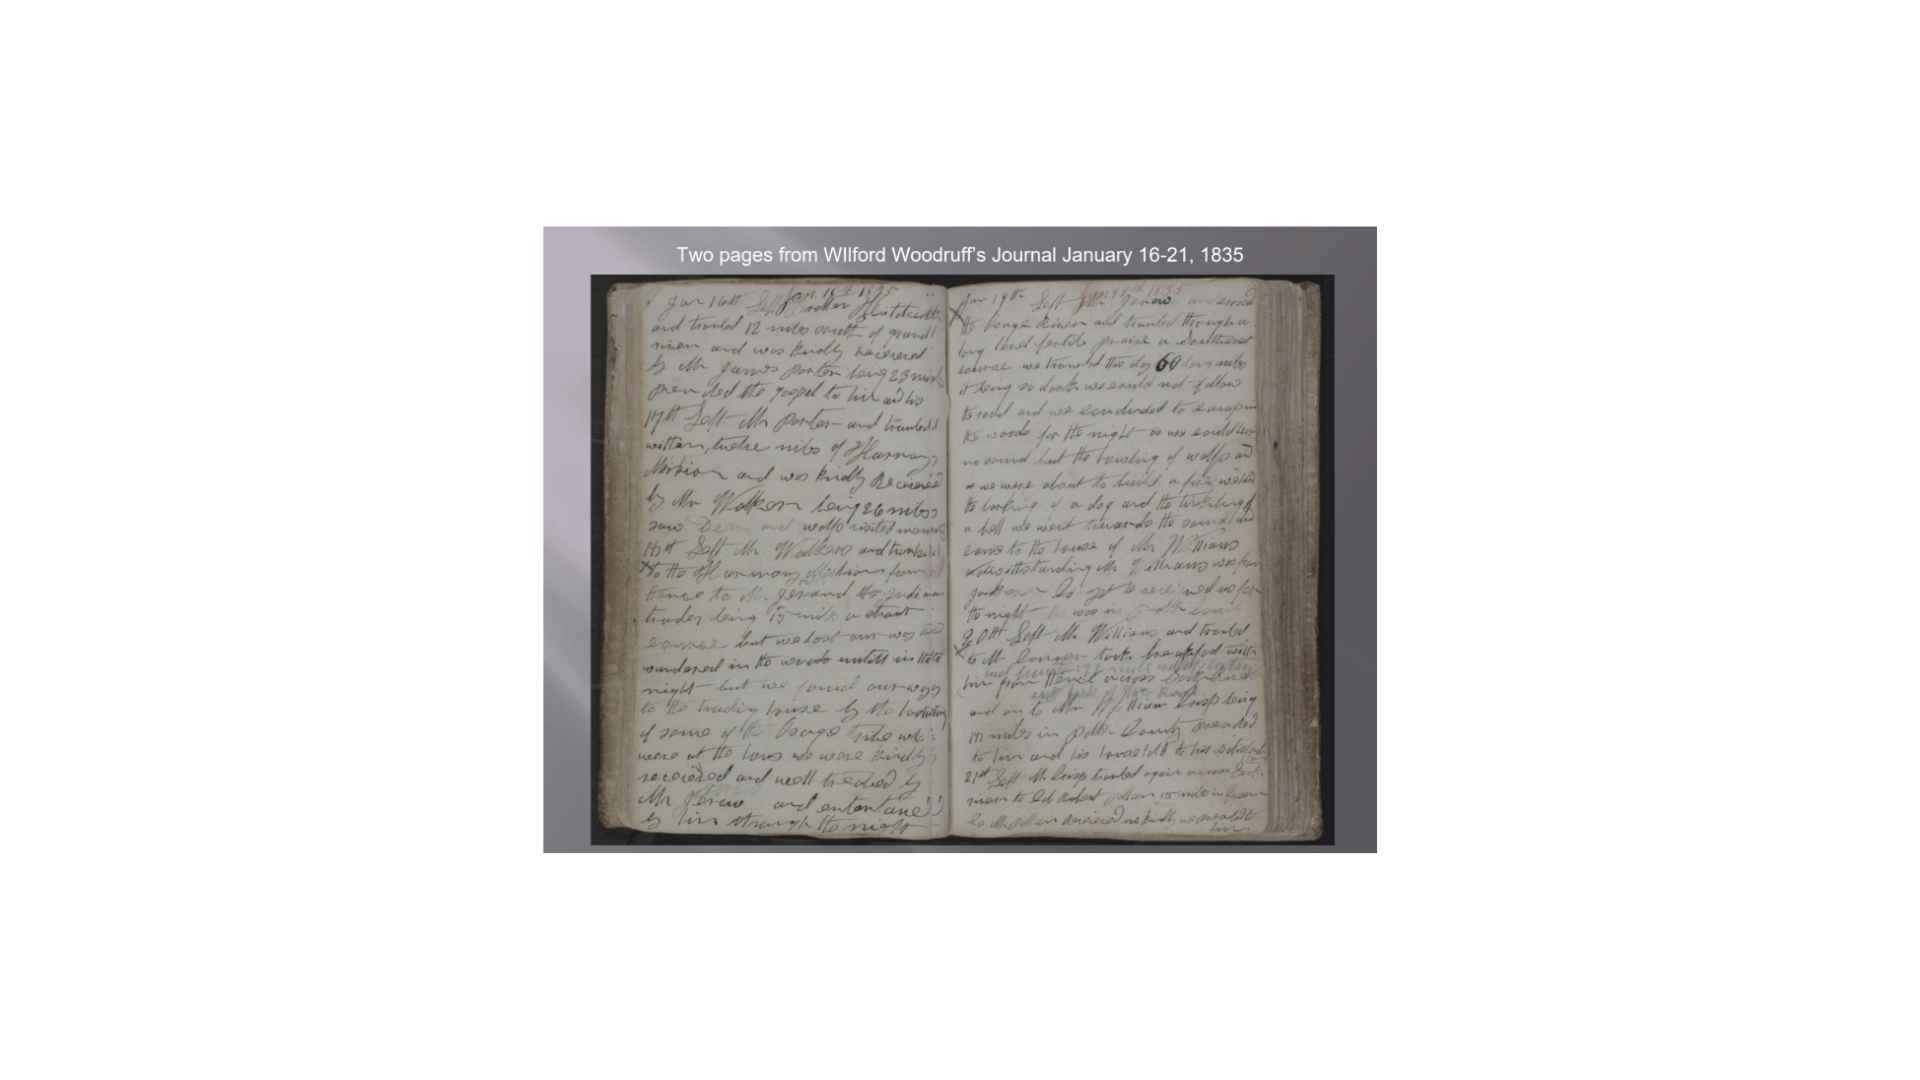 Two pages from WIlford Woodruff's Journal January 16-21, 1835
Jan 16th 1835
Jan 16th Left
and traveled 12 miles south of grand
river and was kindly received
by Mr James Porten being 23 miles
preached the gospel to him and his
17th Left Mr Porter and traveled
within twelve miles of Harmony
Mission and was kindly Received
by Mr Walker being 26 miles
saw Deer and wolfs
18th Left Mr Walkers and traveled
to the Harmony Mission from
thence to Mr Jereau the Indian
trader being 15 mile a strait
course but we lost our way and
wandered in the woods untill in the
night but we found our way
to the trading house by the
of some of the Osage Tribe who
were at the hous we were kindly
received and well treated by
Mr Jereau and entertaned
by him through the night
Jan 19th Left Mr Jereau and
the Osage River and traveled through a
long level fertile praire a Southeast
course we traveled this day 60 long miles
it being so dark we could not follow
the road and we concluded to
the woods for the night as we could hear
no sound but the howling of wolfs and
as we were about to build a fire we
the barking of a dog and the tinkling of
a bell we went towards the sound and
came to the house of Mr Williams
notwithstanding Mr Williams was
Jackson he received us for
the night he was
20th Left Mr Williams and traveled
to Mr Conner took breakfast with
him from thence across
and on to Mr William Crisp being
miles in polk County preached
to him and his household to his
21st Left Mr Crisp traveled again across
river to miles
received us kindly we
him